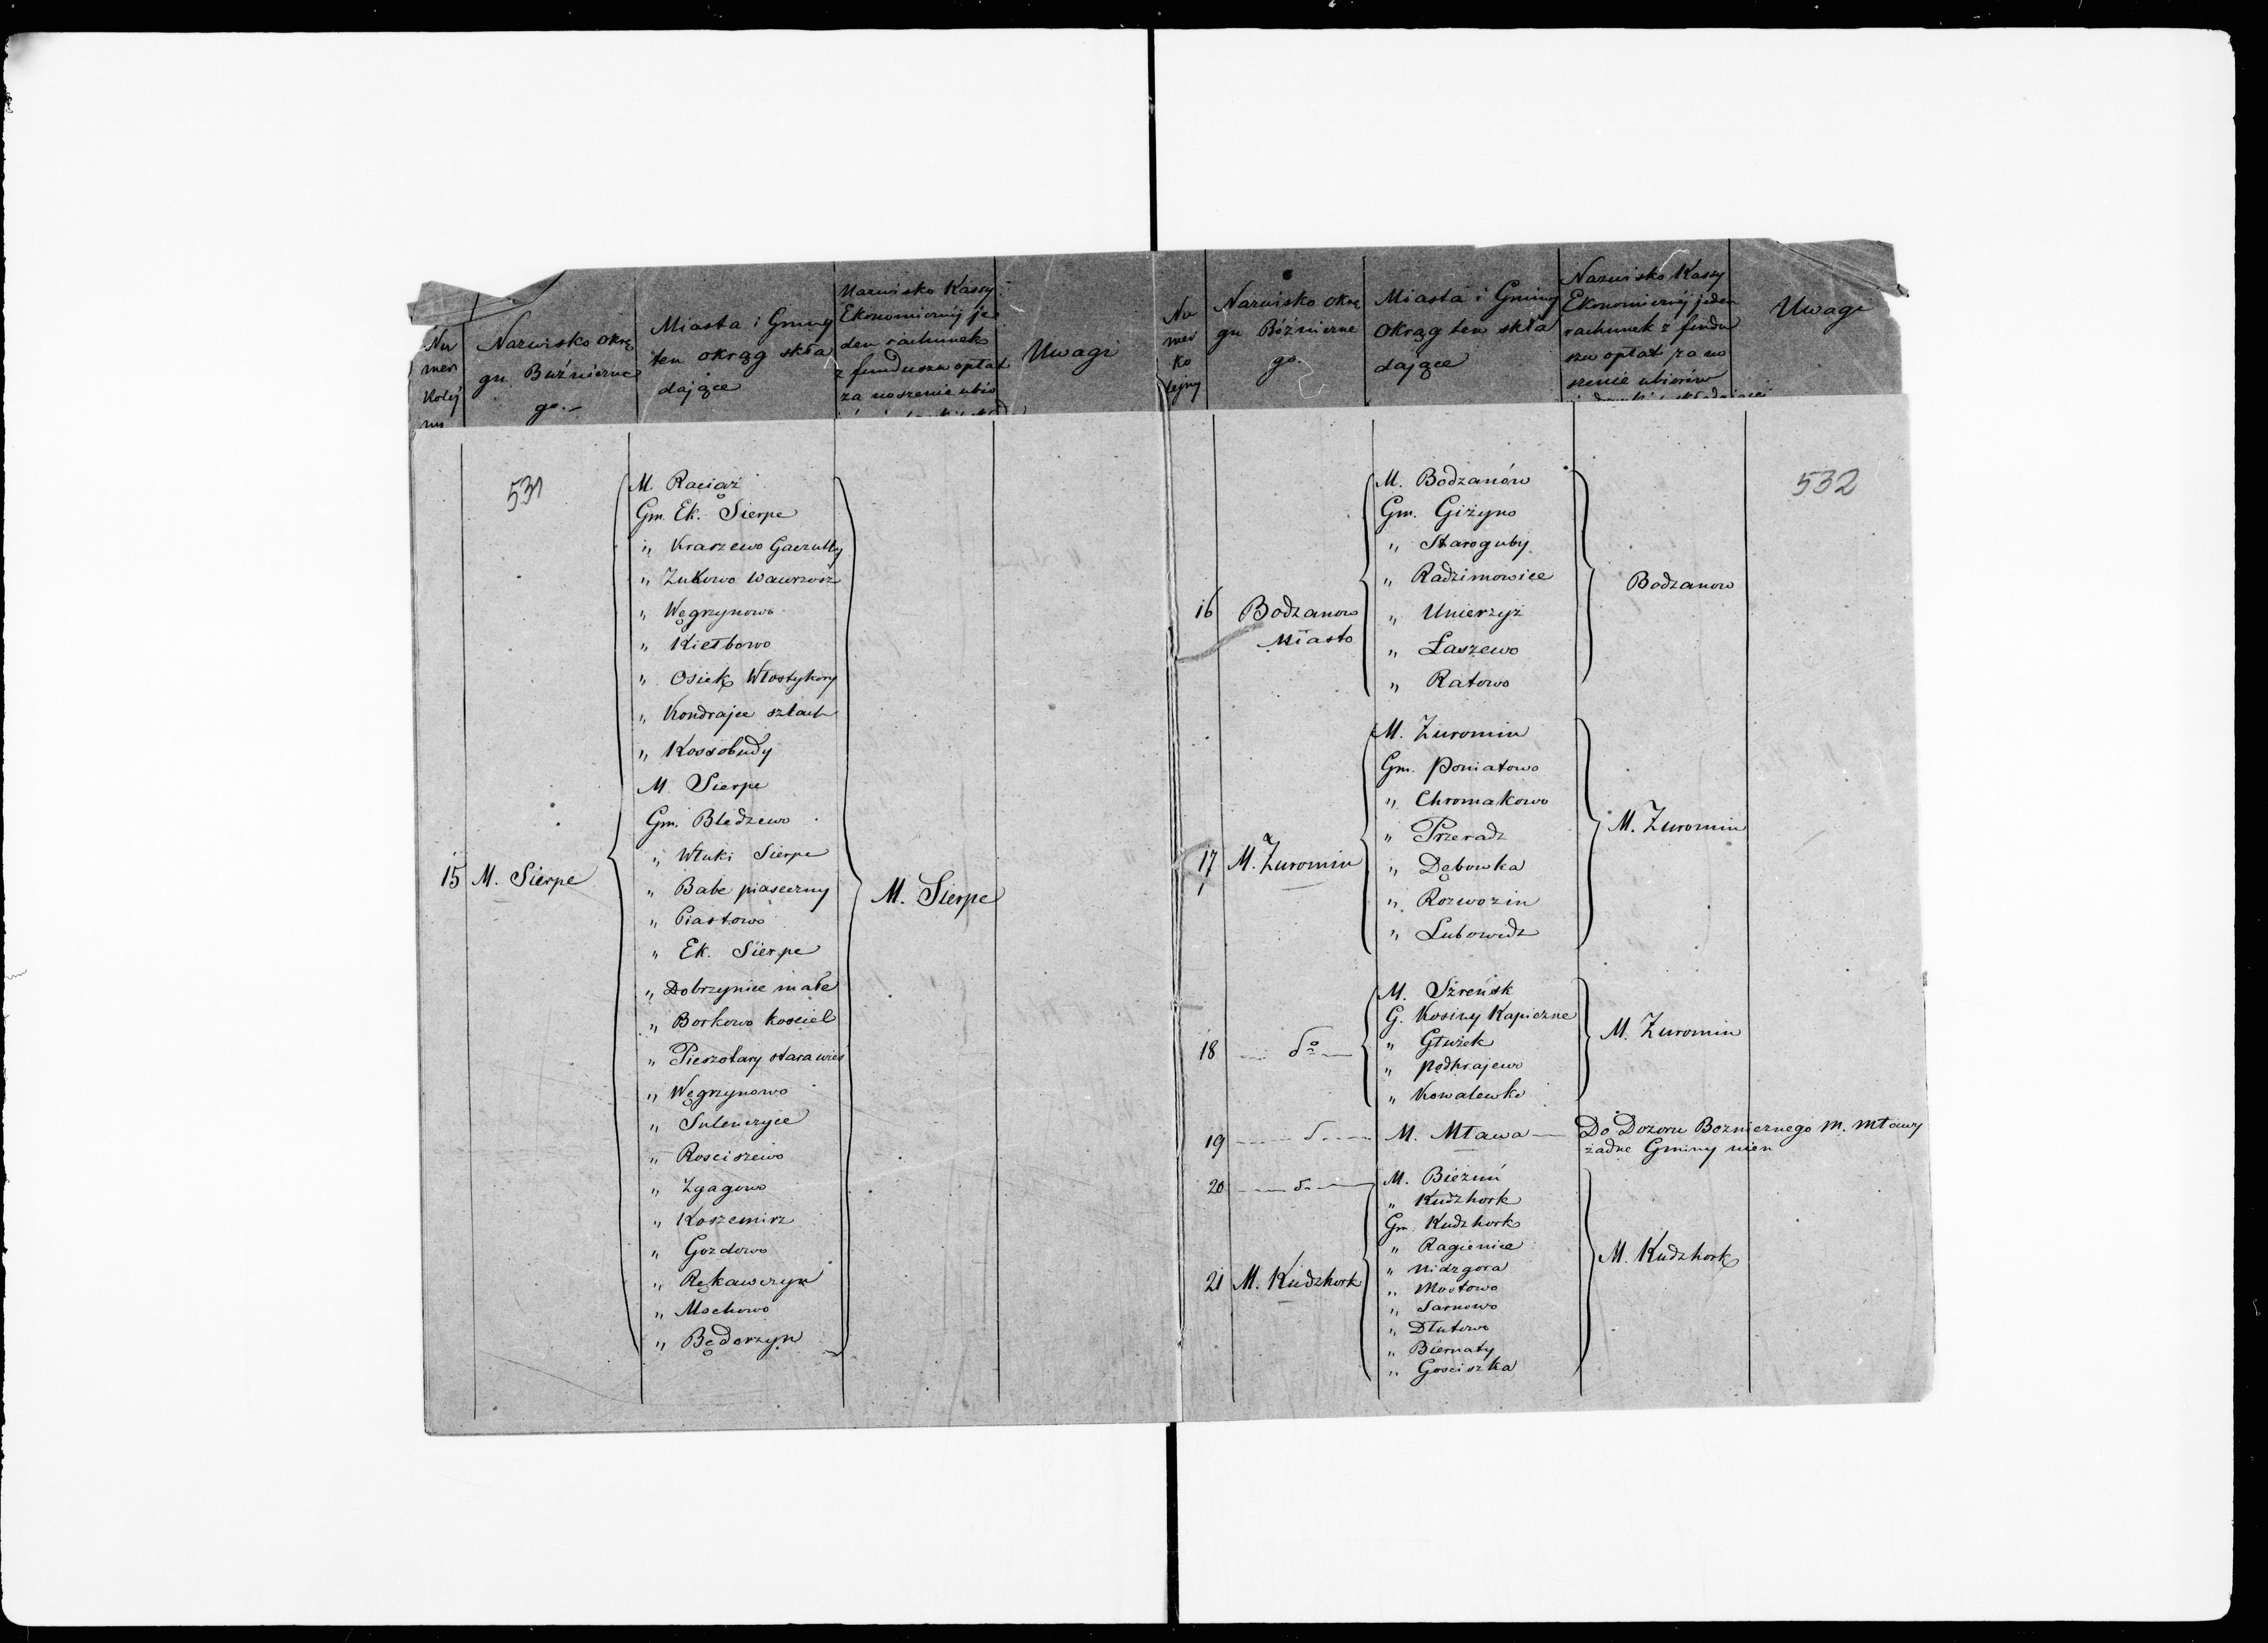 Nu
mer
Koléj
ny
Nazwisko Okrę
gu Buźniczne
go.–
Miasta i Gminy
ten okrąg skła
dające
Nazwisko Kassy
Ekonomicznéj je
den rachunek
z funduszu opłat
za noszenie ubio
Uwagi
531
15 M. Sierpc
M. Raciąż
Gm. Ek. Sierpc
„ Kraszewo Gaczułty
„ Zukowo Wawrzosz
„ Węgrzynowo
„ Kiełbowo
„ Osiek Włostybory
„ Kondrajec szlach
„ Kossobudy
M. Sierpc
Gm. Bledzewo
„ Włuki Sierpc
„ Babc piaseczny
„ Piastowo
„ Ek. Sierpc
„ Dobrzynice małe
„ Borkowo kosciel
„ Pieszotary starawieś
„ Węgrzynowo
„ Sulenczyce
„ Rosciszewo
„ Zgagowo
„ Koszemirz
„ Gozdowo
„ Rękawczyn
„ Mochowo
„ Będorzyn
M. Sierpc
Nu
mer
Ko
lejny
Nazwisko Okrę
gu Bóźniczne
go
Miasta i Gminy
Okrąg ten skła
dające
Nazwisko Kassy
Ekonomicznéj jeden
rachunek z fundu
szu opłat za no
szenie ubiorów
Uwagi
532
16 Bodzanow
Miasto
M. Bodzanów
Gm. Giżyno
„ Staroguby
„ Radzimowice
„ Unierzyż
„ Łaszewo
„ Ratowo
Bodzanow
17 M. Zuromin
M. Zuromin
Gm. Poniatowo
„ Chromakowo
„ Przeradz
„ Dębowka
„ Rozwozin
„ Lubowidz
M. Zuromin
18 do
M. Szreńsk
G. Kosiny Kapiczne
„ Głużek
„ Podkrajewo
„ Kowalewko
M. Zuromin
19 d
M. Mława — Do Dozoru Bozniczego M. Mławy
żadne Gminy nien
20 d
M. Bieżuń
„ Kudzbork
Gm. Kudzbork
„ Ragienice
„ Nidzgora
„ Mostowo
„ Sarnowo
„ Dłutowo
„ Biernaty
„ Gosciszka
21 M. Kudzbork
M. Kudzbork